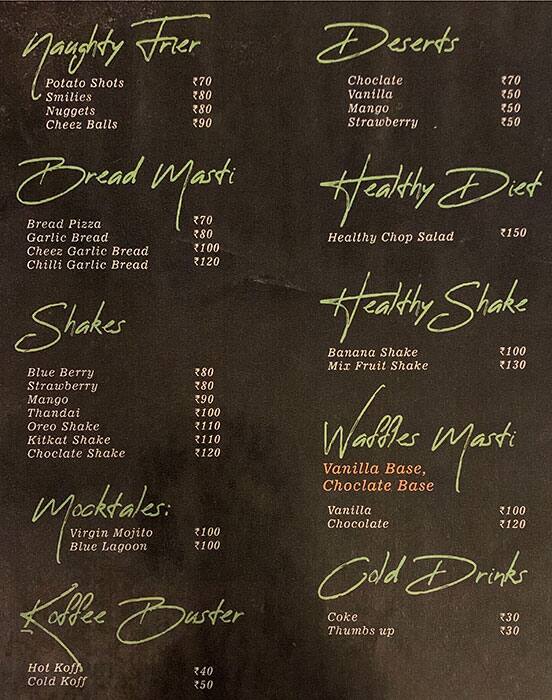 Naughty Frier
Potato Shots ₹70
Smilies ₹80
Nuggets ₹80
Cheez Balls ₹90
Bread Masti
Bread Pizza ₹70
Garlic Bread ₹80
Cheez Garlic Bread ₹100
Chilli Garlic Bread ₹120
Shakes
Blue Berry ₹80
Strawberry ₹80
Mango ₹90
Thandai ₹100
Oreo Shake ₹110
Kitkat Shake ₹110
Choclate Shake ₹120
Mocktales:
Virgin Mojito ₹100
Blue Lagoon ₹100
Koffee Buster
Hot Koff ₹40
Cold Koff ₹50
Deserts
Choclate ₹70
Vanilla ₹50
Mango ₹50
Strawberry ₹50
Healthy Diet
Healthy Chop Salad ₹150
Healthy Shake
Banana Shake ₹100
Mix Fruit Shake ₹130
Waffles Masti
Vanilla Base,
Choclate Base
Vanilla ₹100
Chocolate ₹120
Cold Drinks
Coke ₹30
Thumbs up ₹30